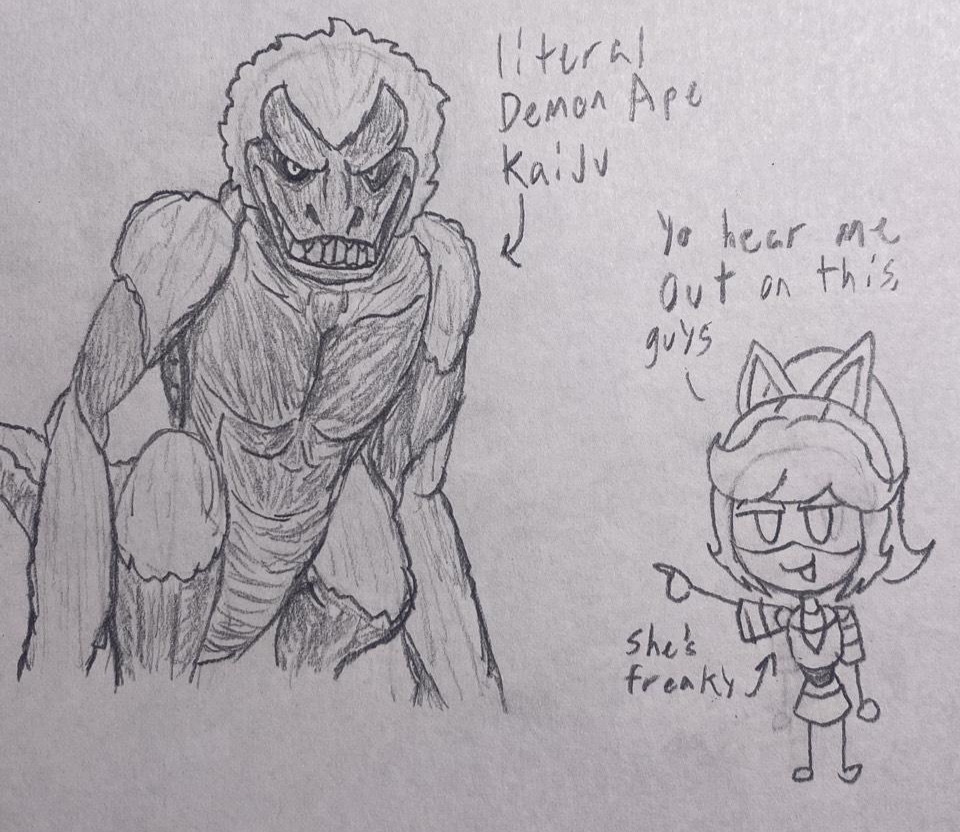 literal
Demon Ape
KaiJu
Yo hear me
Out on this,
guys
She's
freaky